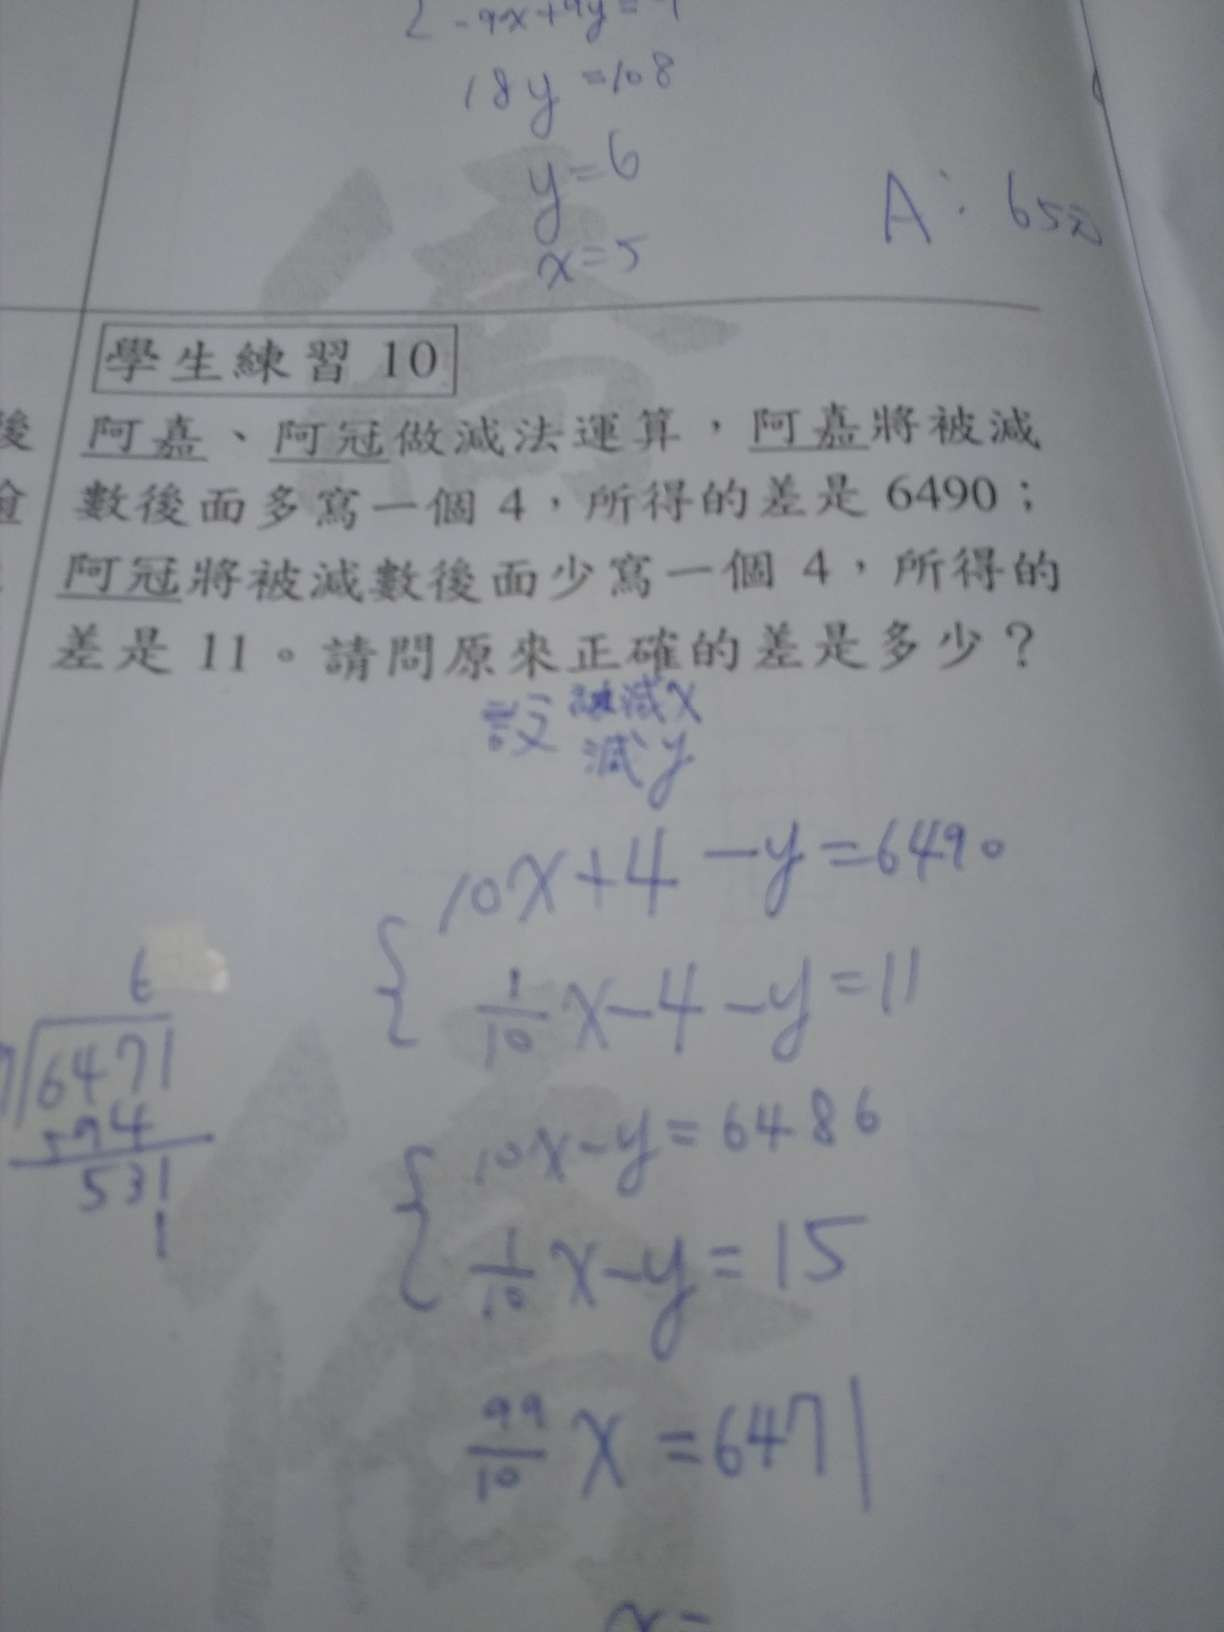 -9x+9y=
18y=108
y=6
x=5
A: 65元
學生練習 10
阿嘉、阿冠做減法運算，阿嘉將被減
數後面多寫一個 4，所得的差是 6490；
阿冠將被減數後面少寫一個 4，所得的
差是 11。請問原來正確的差是多少？
後
設 被減x
減y
10x+4-y=6490
1/10 x-4-y=11
10x-y=6486
1/10 x-y=15
99/10 x=6471
x=
6
6471
594
531
1